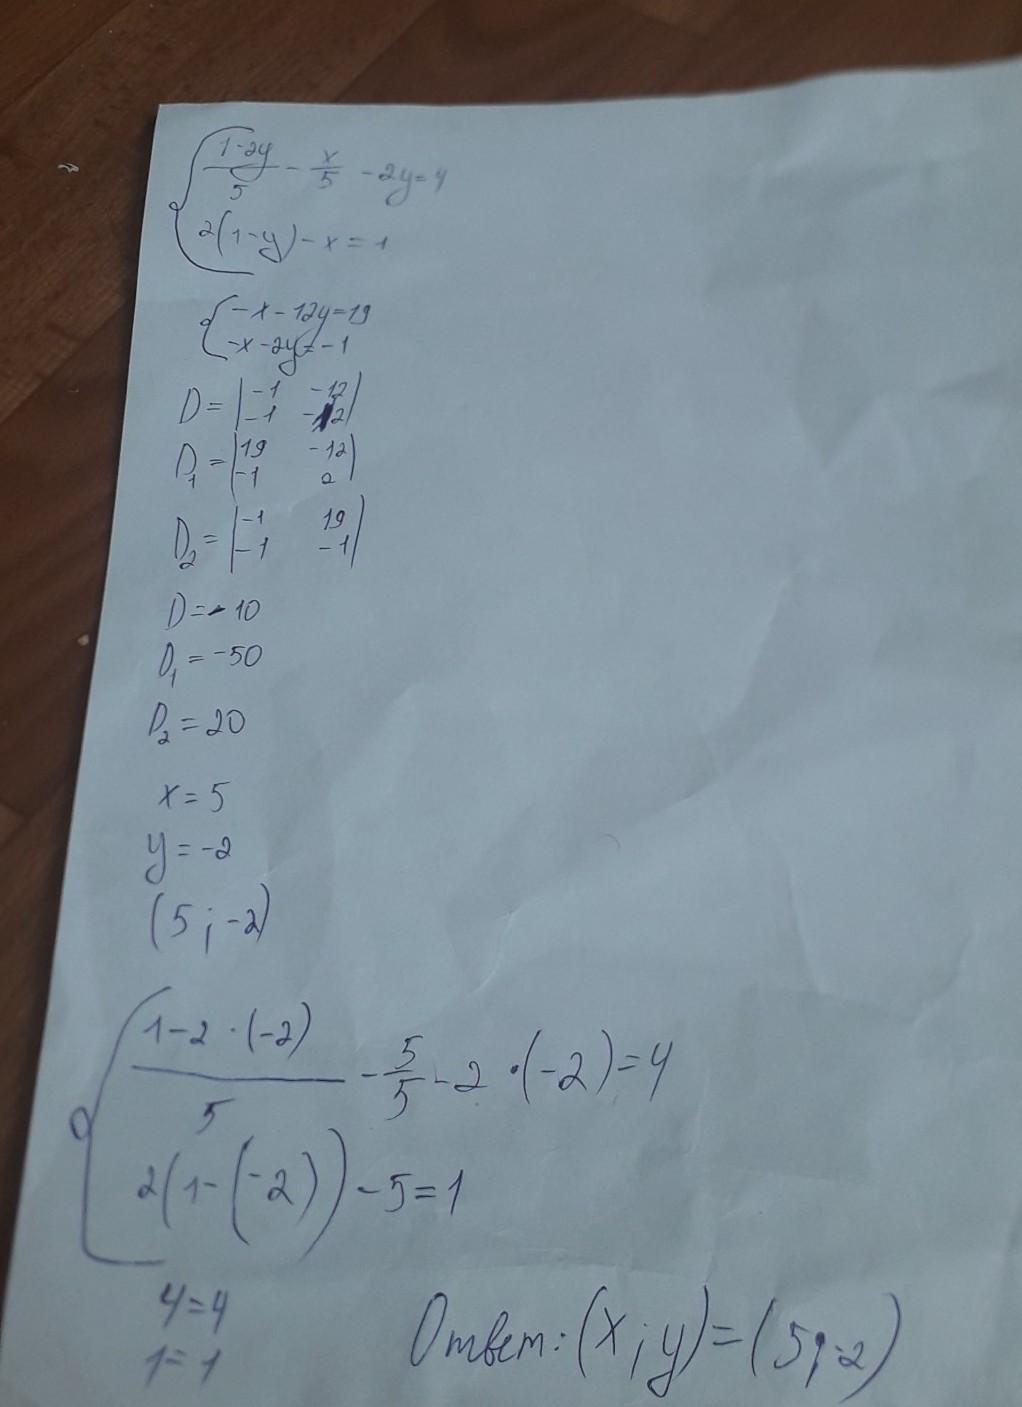 { (1-2y)/5 - x/5 - 2y = 4
2(1-y) - x = 1
{ -x - 12y = 19
-x - 2y = -1
D = | -1 -12 |
| -1 -2 |
D₁ = | 19 -12 |
| -1 2 |
D₂ = | -1 19 |
| -1 -1 |
D = -10
D₁ = -50
D₂ = 20
x = 5
y = -2
(5 ; -2)
{ (1-2·(-2))/5 - 5/5 - 2·(-2) = 4
2(1-(-2)) - 5 = 1
4 = 4
1 = 1
Ответ: (x ; y) = (5 ; -2)